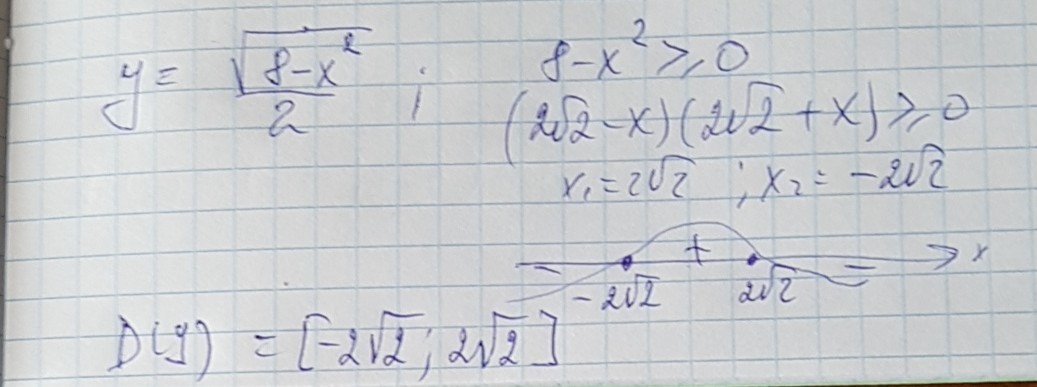 y = √(8-x²)/2 ; 8-x² ⩾ 0
(2√2-x)(2√2+x) ⩾ 0
x₁=2√2 ; x₂= -2√2
- + - x
-2√2 2√2
D(y) = [-2√2; 2√2]